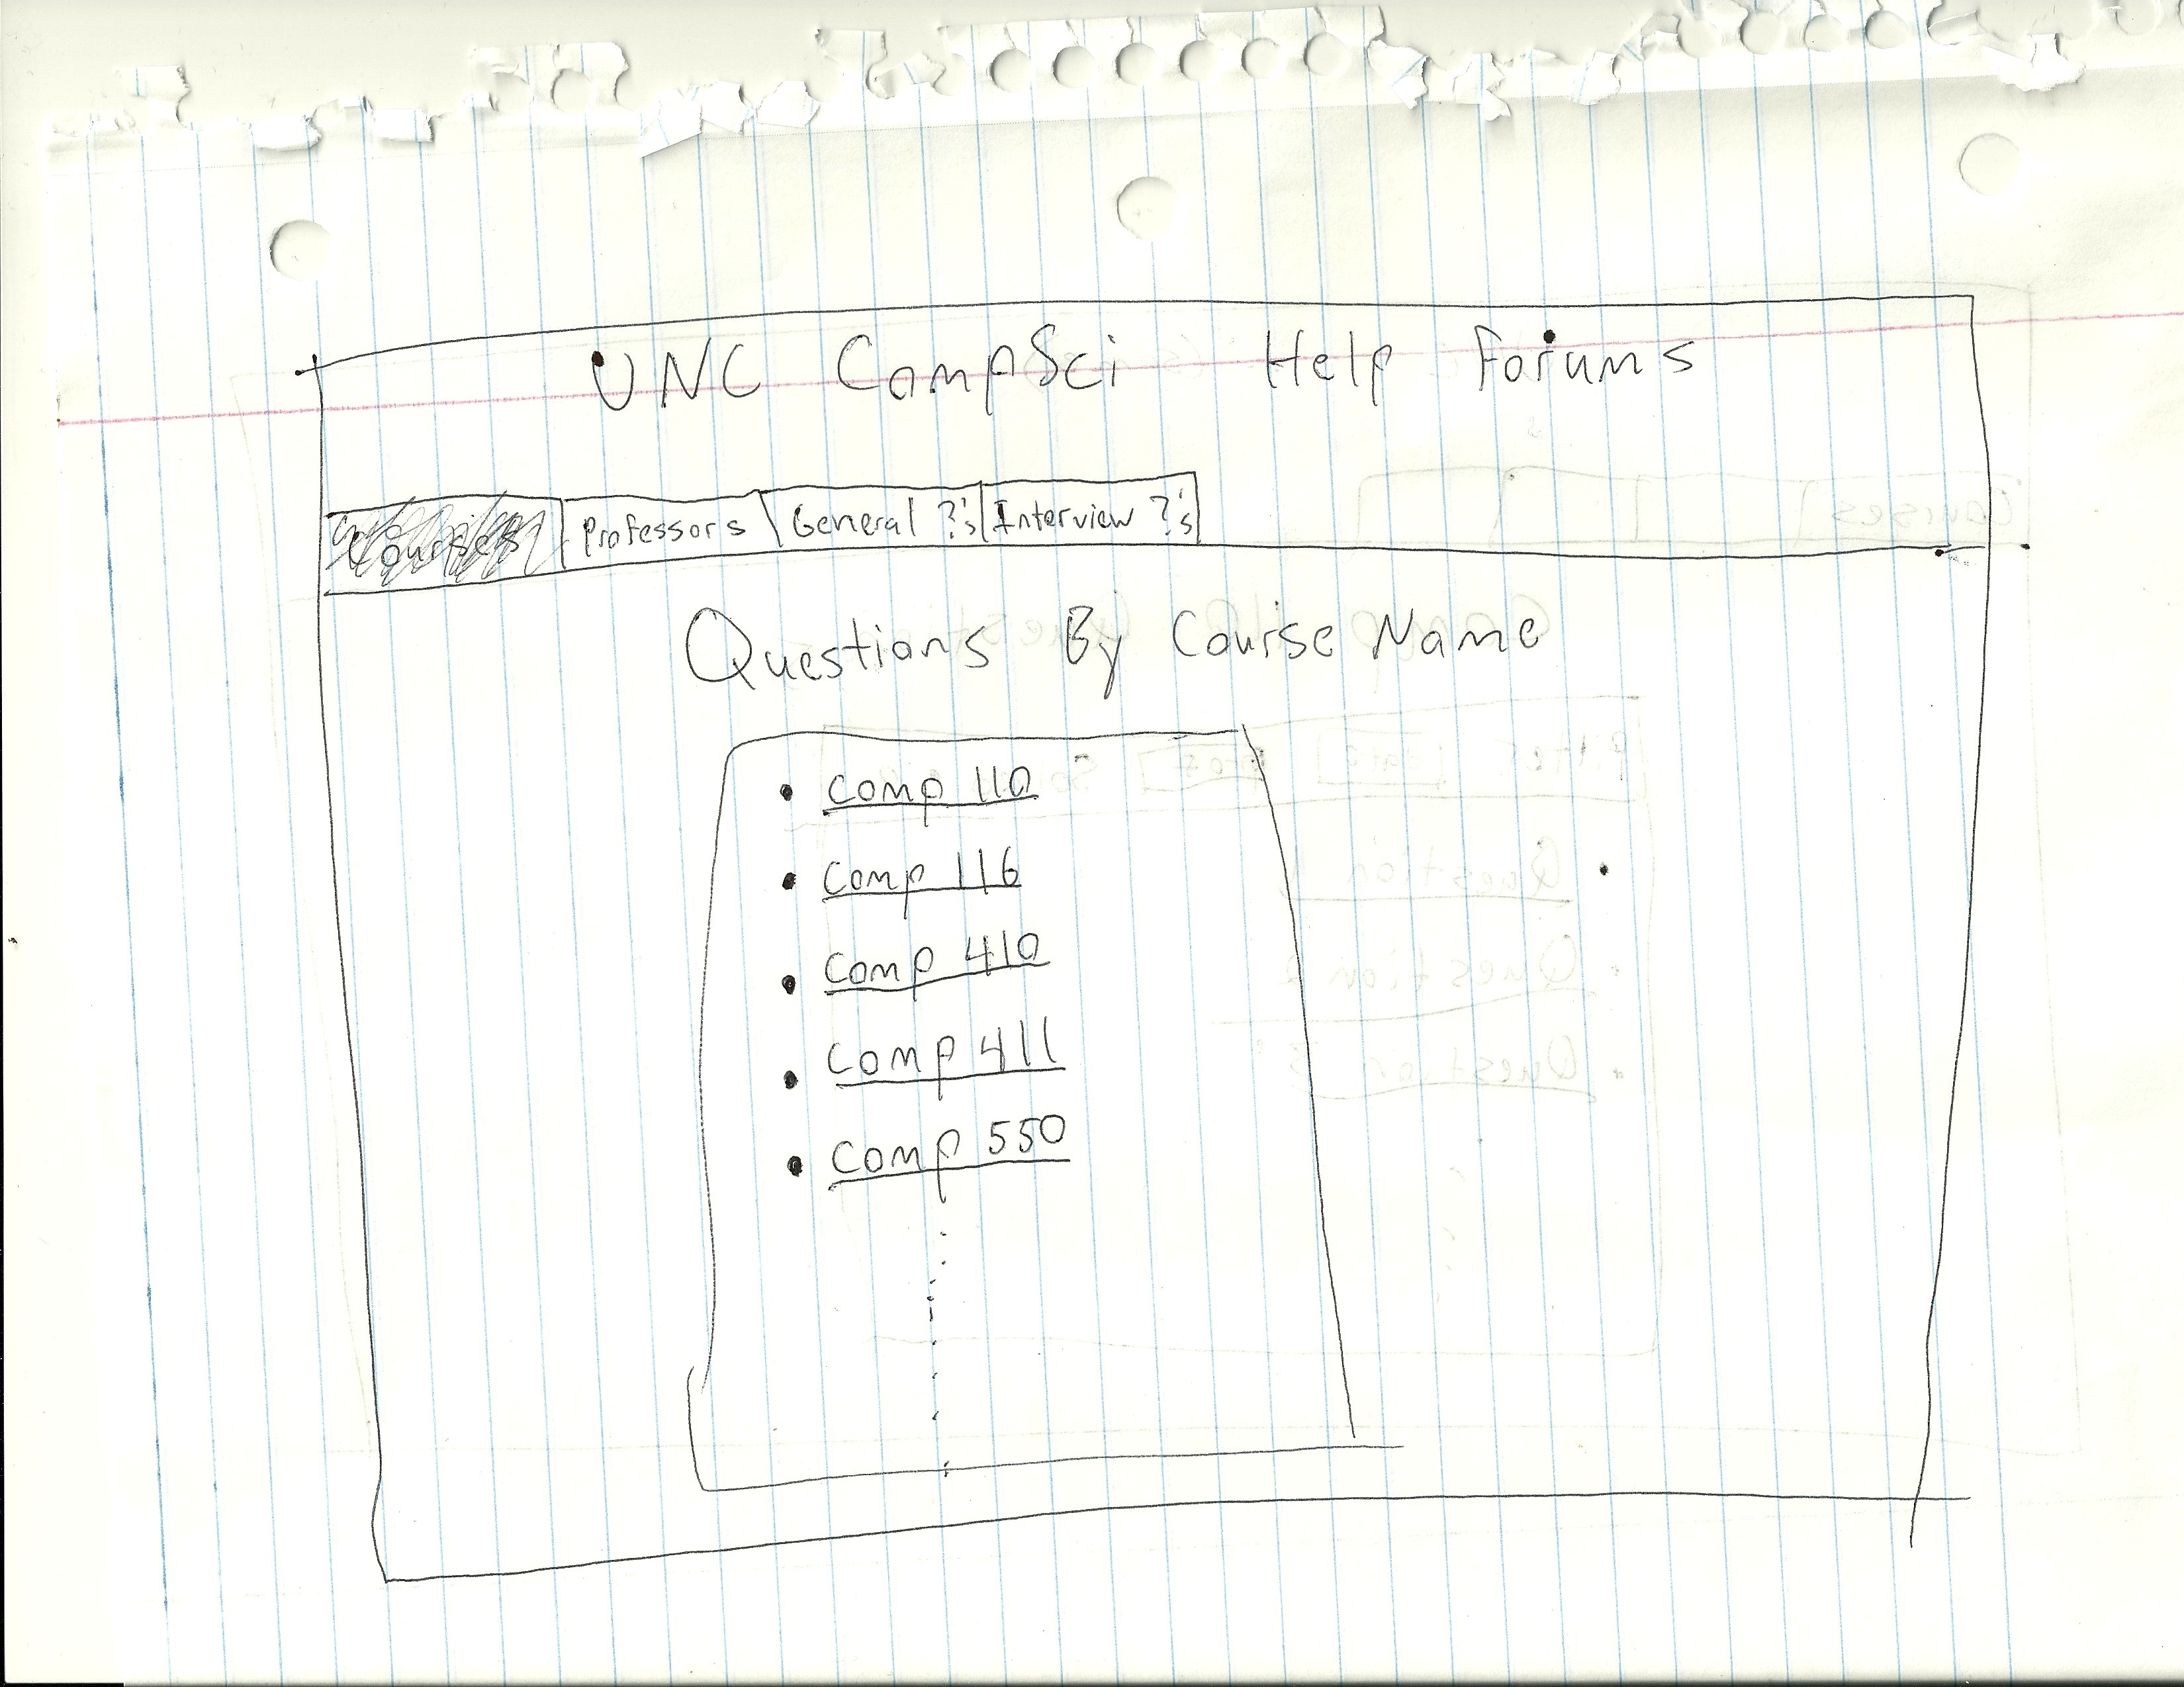 UNC CompSci Help Forums
Courses Professors General ?'s Interview ?'s
Questions By Course Name
• Comp 110
• Comp 116
• Comp 410
• Comp 411
• Comp 550